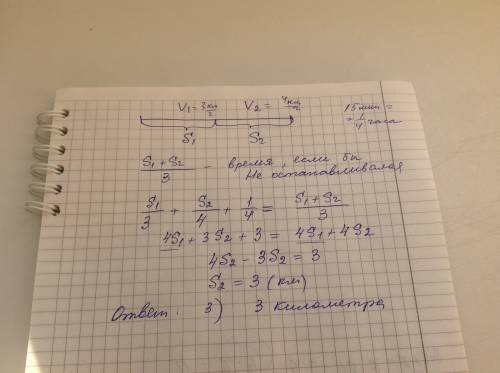 V₁ = 3 км/ч V₂ = 4 км/ч 15 мин =
= 1/4 часа
S₁ S₂
(S₁ + S₂)/3 – время, если бы
не останавливался
S₁/3 + S₂/4 + 1/4 = (S₁ + S₂)/3
4S₁ + 3S₂ + 3 = 4S₁ + 4S₂
4S₂ - 3S₂ = 3
S₂ = 3 (км)
Ответ: 3) 3 километра